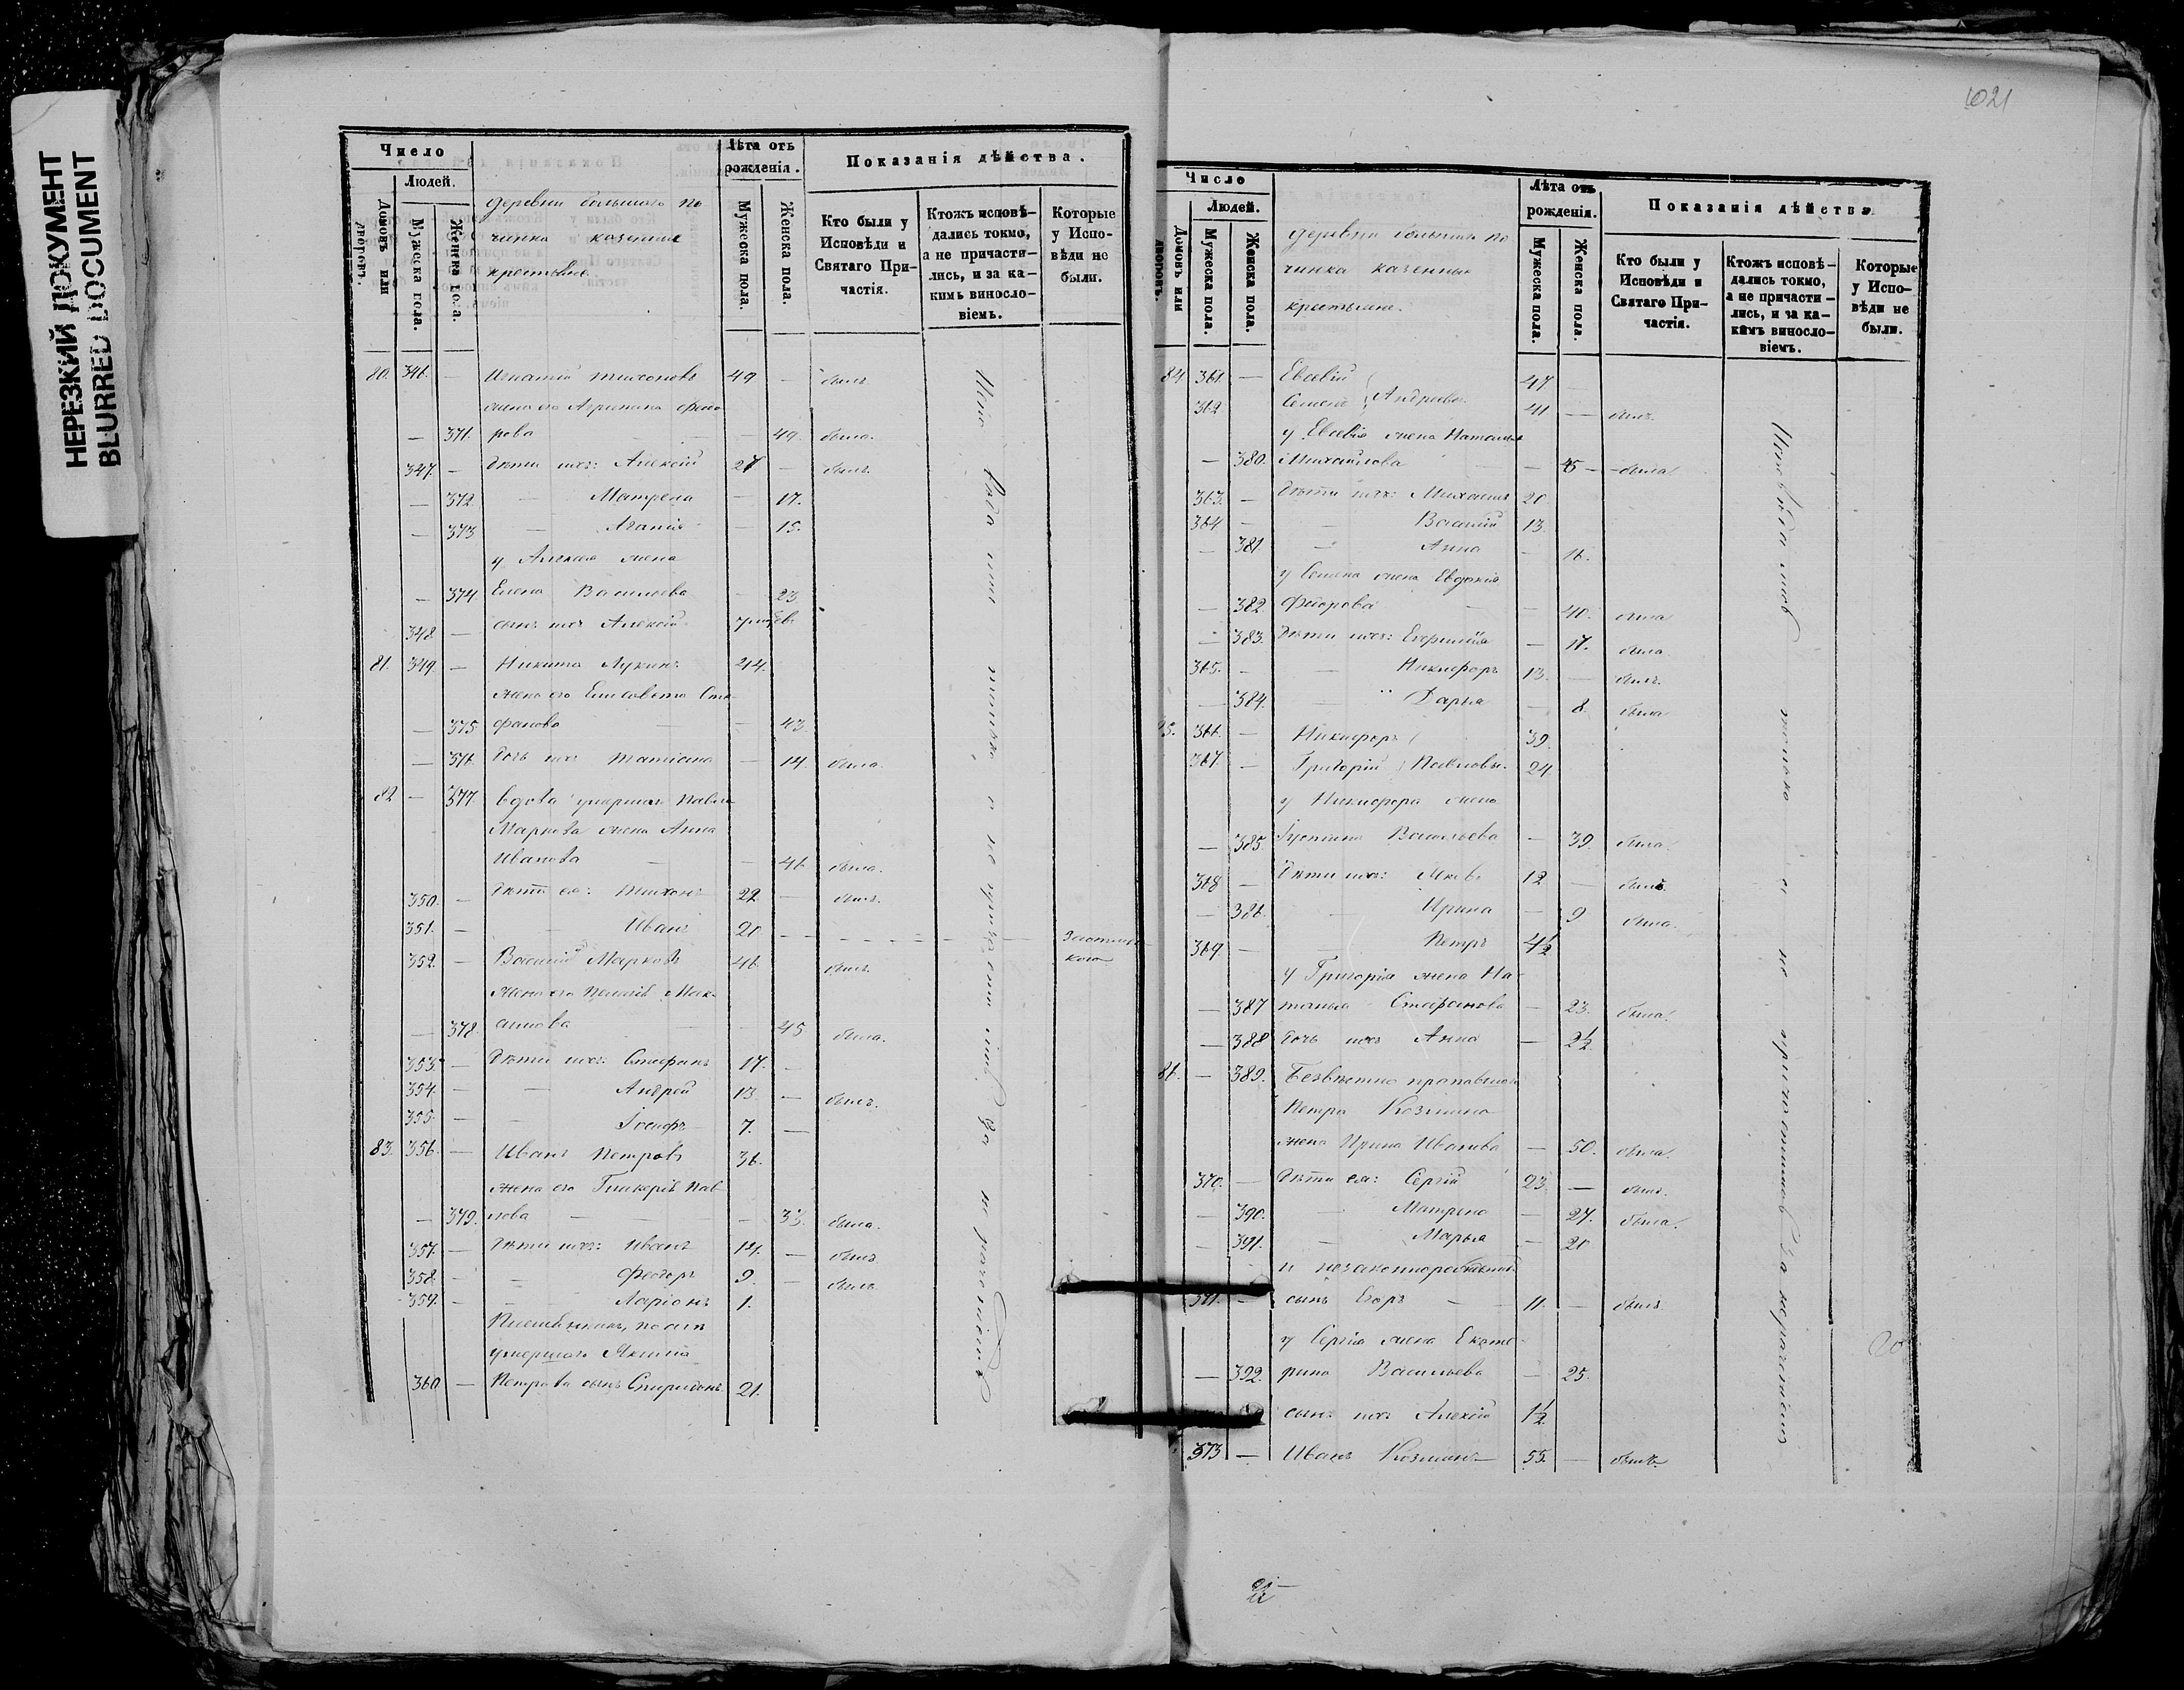 НЕРЕЗКИЙ ДОКУМЕНТ
BLURRED DOCUMENT
Число
Людей.
Домовъ или дворовъ.
Мужеска пола.
Женска пола.
деревни большаго по
чинка казенные
крестьяне.
Лѣта отъ рожденія.
Мужеска пола.
Женска пола.
Показанія дѣйства.
Кто были у Исповѣди и Святаго Причастія.
Ктожъ исповѣдались токмо, а не причастились, и за какимъ винословіемъ.
Которые у Исповѣди не были.
80. 346. — Игнатій Тихоновъ 49 — былъ
жена его Агрипина Федо
— 371. рова — 49. была.
347. — дѣти ихъ: Алексій 27 — былъ
— 372. — Матрена — 17.
— 373 — Агапія — 15.
у Алексея жена
— 374 Елена Васильева — 23
348. — сынъ ихъ Алексій
81. 349. — Никита Лукинъ 44.
жена его Елисавета Сте
— 375 фанова — 43
— 376. дочь ихъ Татіана — 14. была.
82 — 377. вдова умершаго Павла
Маркова жена Анна
Иванова — 46. была.
350. — дѣти ея: Тихонъ 22 — былъ.
351. — — Иванъ 20
352. — Василій Марковъ 46. былъ.
жена его Пелагія Мак
— 378. симова — 45 была.
353. — дѣти ихъ: Стефанъ 17. —
354. — — Андрей 13. — былъ.
355. — — Іосифъ 7. —
83. 356. — Иванъ Петровъ 36.
жена его Гликерія Пав
— 379. лова — 33. была.
357. — дѣти ихъ: Иванъ 14. — былъ
358. — — Феодоръ 9. — былъ
359. — — Ларіонъ 1.
Племянникъ, послѣ
умершаго Якима
360 — Петрова сынъ Спиридонъ 21.
1021
Число
Людей.
Домовъ или дворовъ.
Мужеска пола.
Женска пола.
деревни большаго по
чинка казенные
крестьяне.
Лѣта отъ рожденія.
Мужеска пола.
Женска пола.
Показанія дѣйства.
Кто были у Исповѣди и Святаго Причастія.
Ктожъ исповѣдались токмо, а не причастились, и за какимъ винословіемъ.
Которые у Исповѣди не были.
84. 361. — Евсевій 47 —
362. Семенъ } Андреевы 41 — былъ.
у Евсевія жена Наталья
— 380. Михайлова — 45 — была
363. — дѣти ихъ: Михаилъ 20
364 — — Василій 13.
— 381. — Анна — 16.
у Семена жена Евдокія
— 382. Федорова — 40. была
— 383. дѣти ихъ: — 17. была
365. — — Никифоръ 13. — былъ.
— 384. — Дарья — 8. была
366. — Никифоръ 39.
367. — Григорій } Павловы. 24
у Никифора жена
— 385. Іустина Васильева — 39. была.
368 — дѣти ихъ: Яковъ 12 — былъ.
— 386. — Ирина — 9 была.
369. — — Петръ 4½
у Григорія жена На
— 387 талья Стефанова — 23. была.
— 388 дочь ихъ Анна — 2½
86. — 389. Безвѣстно пропавшаго
Петра Козмина
жена Ирина Иванова — 50. была.
370. — дѣти ея: Сергій 23. — былъ.
— 390. — Матрена — 27. была.
— 391. — Марья — 20
и незаконнорожденный
371. — сынъ Егоръ — 11. — былъ
у Сергія жена Екате
— 392. рина Васильева — 25.
сынъ ихъ Алексій 1½
373 — Иванъ Козминъ 55. — былъ
Исповѣдались только а не причастились за нерачениемъ